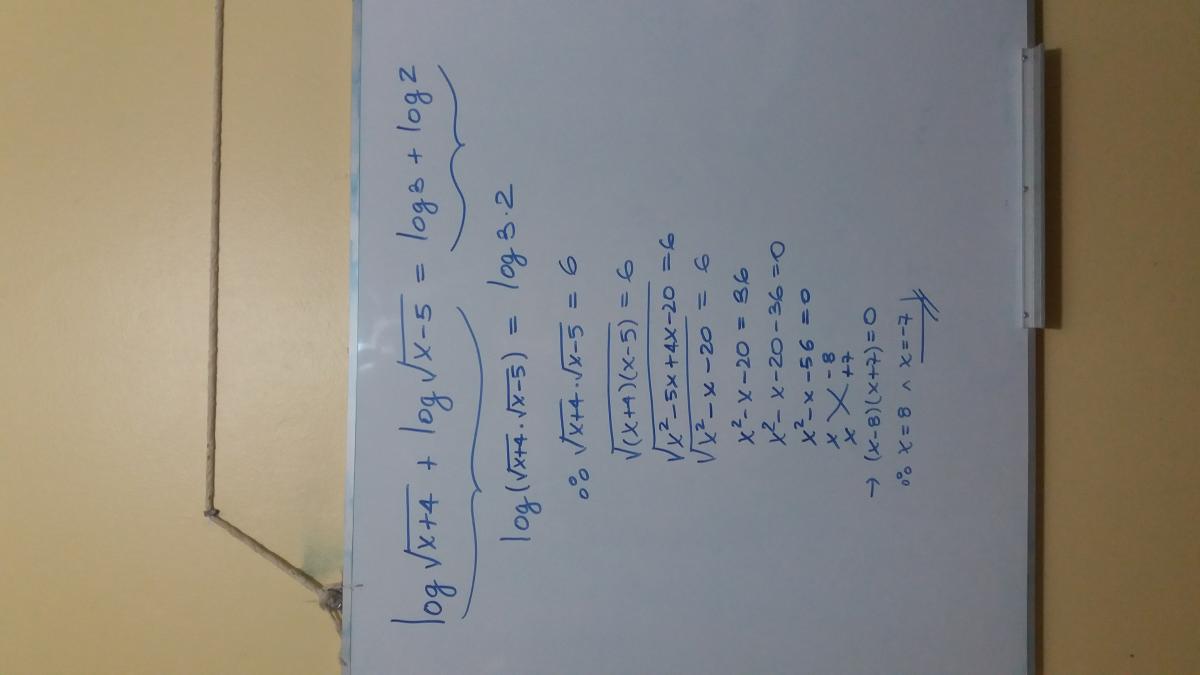 log√x+4 + log√x-5 = log3 + log2
log(√x+4·√x-5) = log3·2
∴ √x+4·√x-5 = 6
√(x+4)(x-5) = 6
√x²-5x+4x-20 = 6
√x²-x-20 = 6
x²-x-20 = 36
x²-x-20-36=0
x²-x-56=0
x -8
x +7
→ (x-8)(x+7)=0
∴ x=8 ∧ x=-7